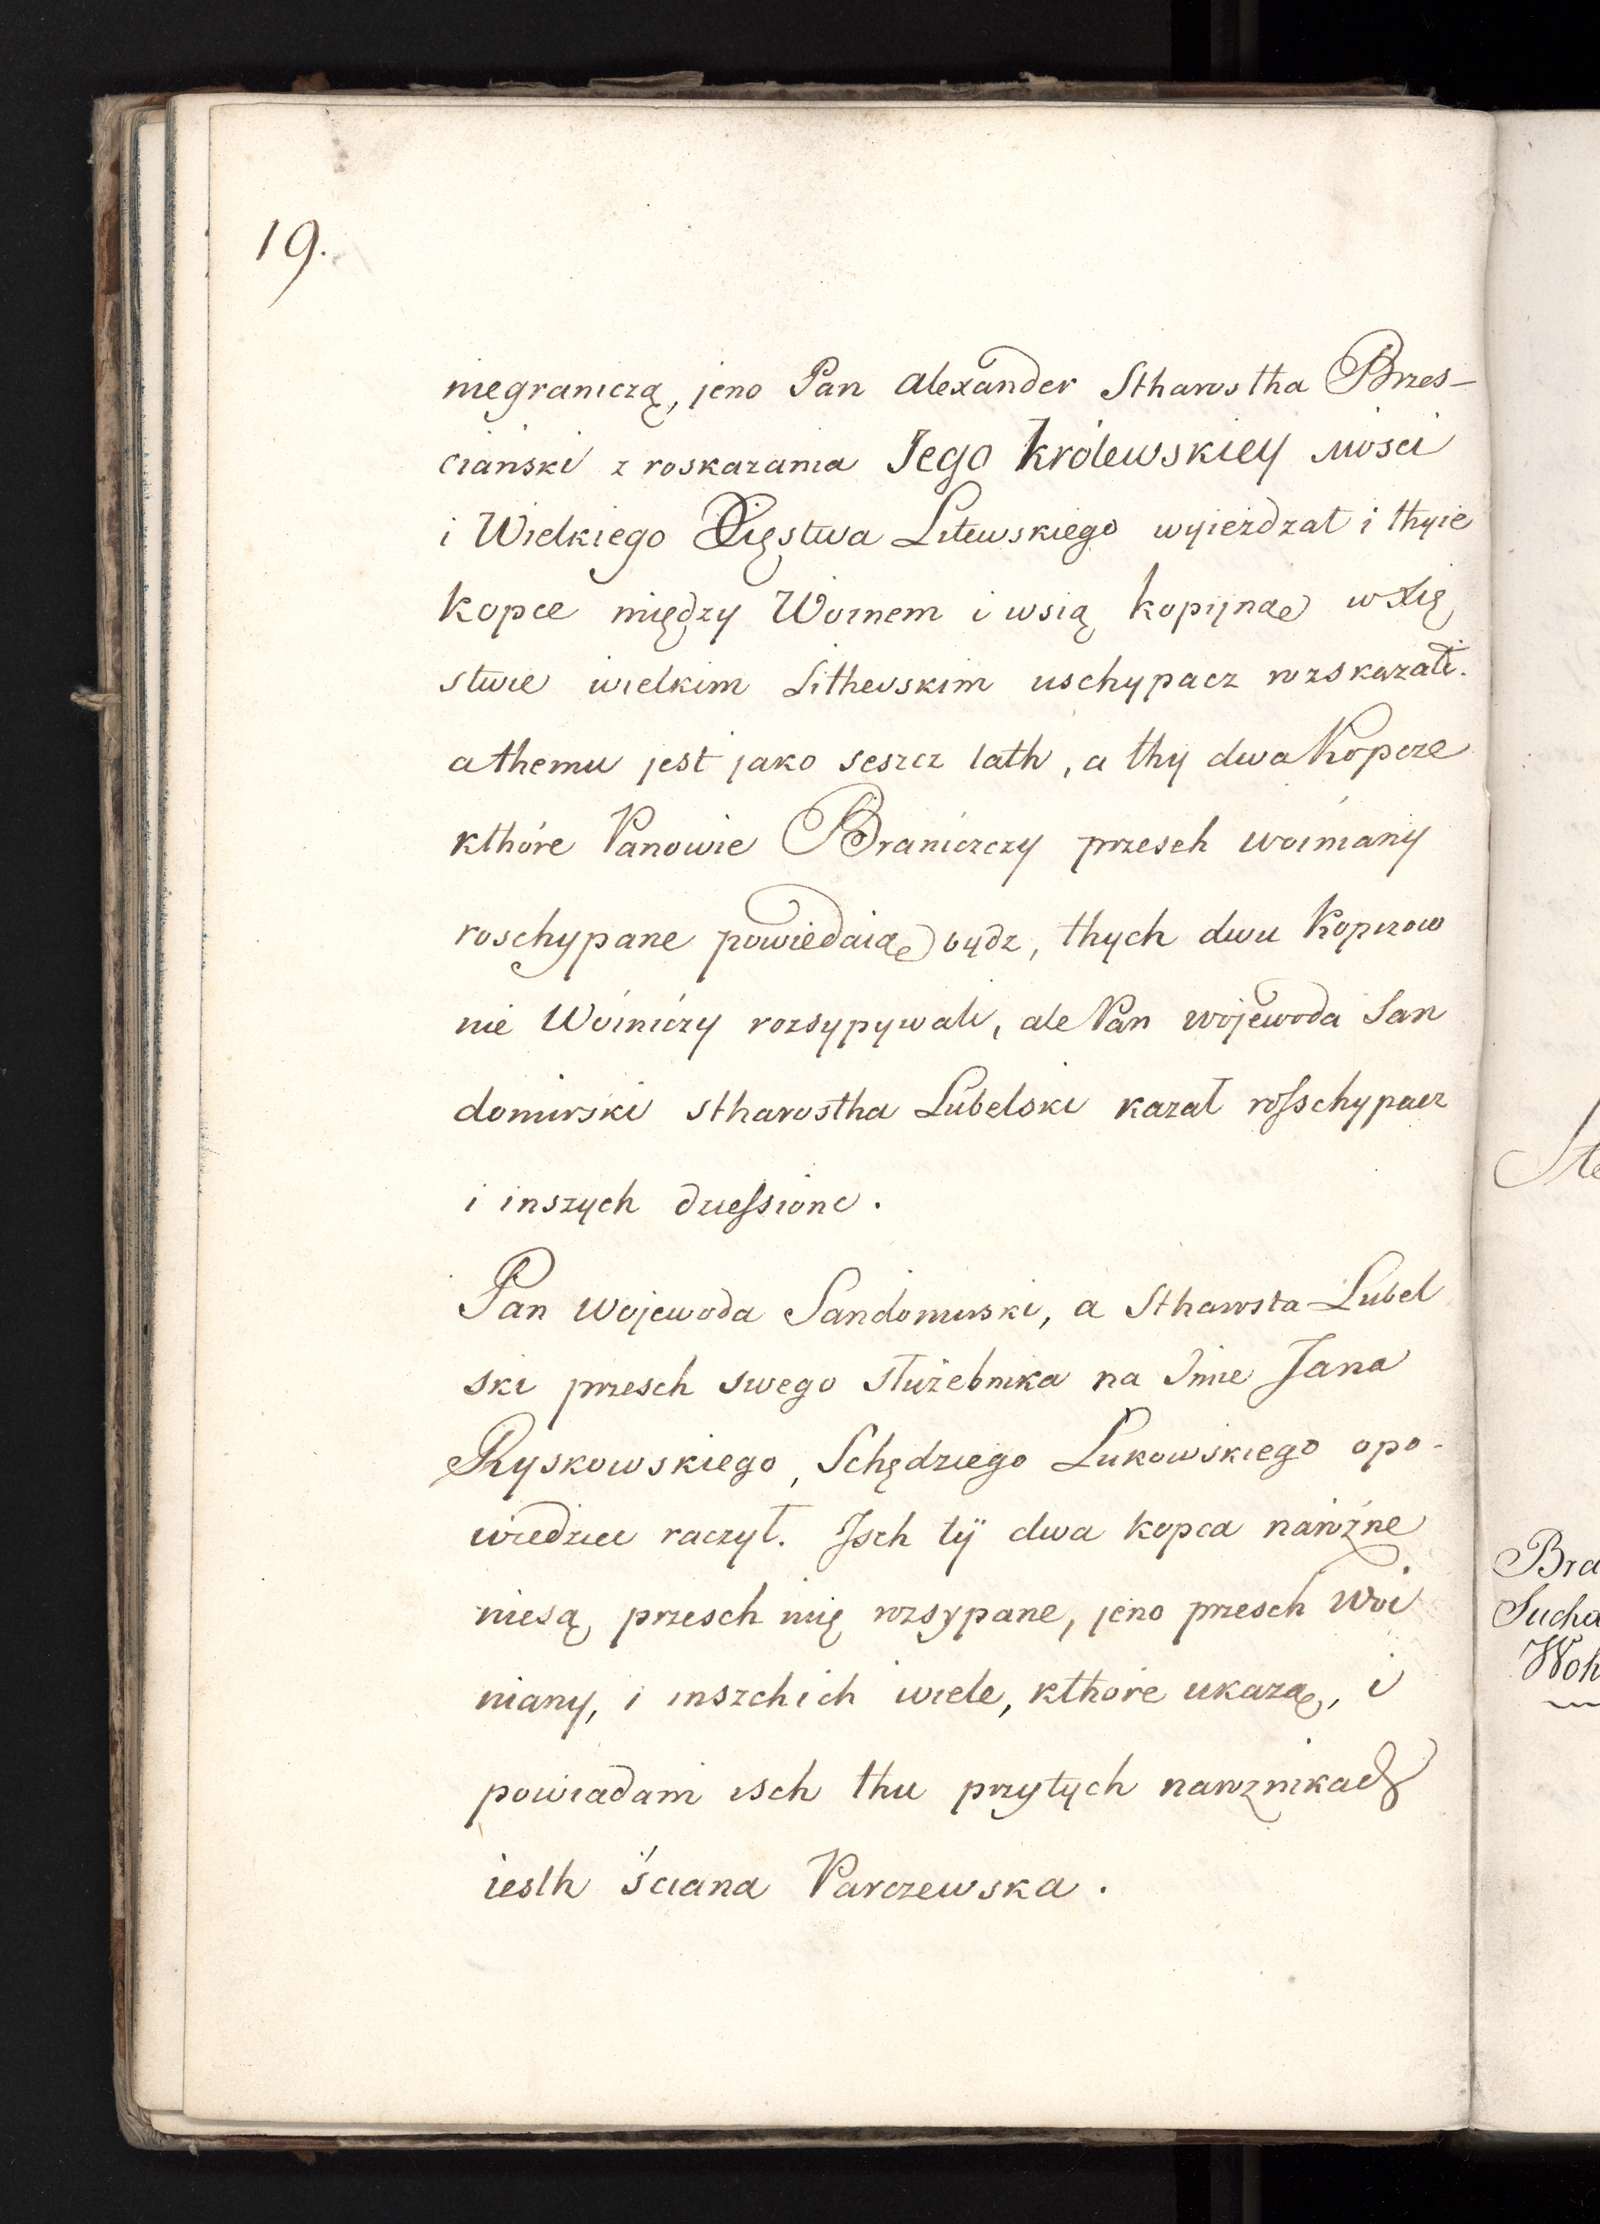 19.
niegraniczą, jeno Pan Alexander Stharostha Brzes-
ciański z roskazania Jego Królewskiey Mości
i Wielkiego Xięstwa Litewskiego wyieżdzał i thyie
kopce między Woinem i wsią kopijną w Xię
stwie wielkim Lithevskim uschypacz rozskazali.
a themu jest jako seszcz lath, a thy dwa Kopcze
kthóre Panowie Braniczczy przesch woiniany
roschypane powiedaią bydz, thych dwu Kopczow
nie Woiniczy rozsypywali, ale Pan wojewoda San
domirski stharostha Lubelski kazał rosschypacz
i inszych dziessionc.
Pan wojewoda Sandomirski, a Stharosta Lubel
ski przesch swego służebnika na Imie Jana
Ryskowskiego, Schędziego Lukowskiego opo-
wiedziec raczył. Jsch tÿ dwa kopca narożne
niesą przesch mię rozsypane, jeno przesch Woi
niany, i inszchich wiele, kthóre ukazą, i
powiadam isch thu przytych narożnikach
iesth ściana Parczewska.
Bra
Sucha
Woh